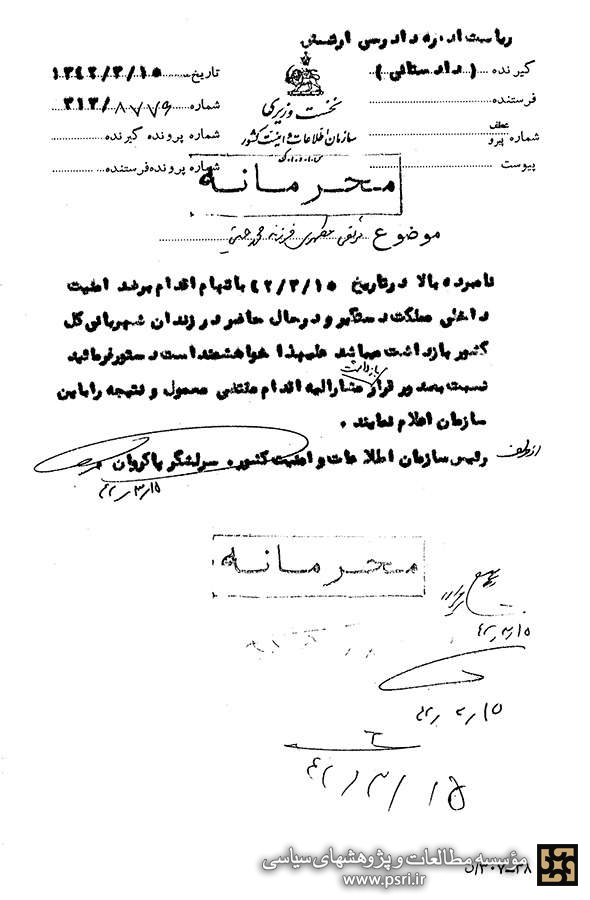 ریاست اداره دادرسی ارتش
گیرنده ( دادستانی )
تاریخ ۱۳۴۲/۳/۱۵
فرستنده
شماره ۳۱۲/۸۷۷۶
نخست وزیری
سازمان اطلاعات و امنیت کشور
عطف
شماره پیرو
شماره پرونده گیرنده
پیوست
شماره پرونده فرستنده
محرمانه
موضوع مرتضی مطهری فرزند محمدحسین
نامبرده بالا در تاریخ ۴۲/۳/۱۵ باتهام اقدام برضد امنیت
داخلی مملکت دستگیر و در حال حاضر در زندان شهربانی کل
کشور بازداشت میباشد علیهذا خواهشمند است دستور فرمائید
نسبت بصدور قرار بازداشت مشارالیه اقدام مقتضی معمول و نتیجه را باین
سازمان اعلام نمایند .
رئیس سازمان اطلاعات و امنیت کشور . سرلشگر پاکروان .
از طرف
۴۲/۳/۱۵
محرمانه
۴۲/۳/۱۵
۴۲/۳/۱۵
۴۲/۳/۱۵
مؤسسه مطالعات و پژوهشهای سیاسی
www.psri.ir